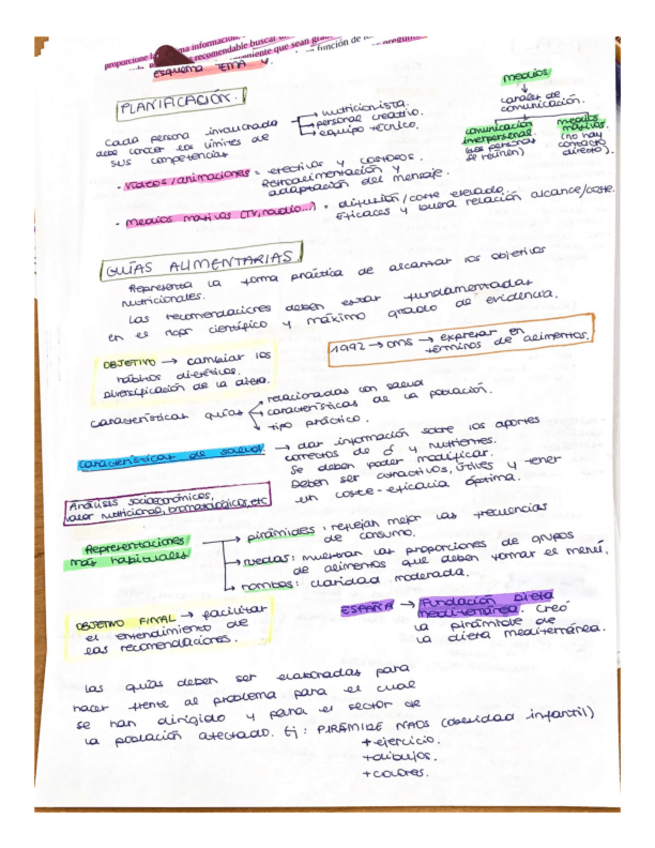 proporcione la
ma información,
recomendable buscar
niente que sean
función de
esquema TEMA 4.
PLANIFICACIÓN.
Cada persona involucrada
debe conocer los límites de
sus competencias
→ nutricionista.
→ personal creativo.
→ equipo técnico.
medios
canales de
comunicación.
comunicación
interpersonal
(las personas
se reúnen)
medios
masivos
(no hay
contacto
directo).
- Videos/animaciones = efectivos y costosos.
Retroalimentación y
adaptación del mensaje.
- Medios masivos (TV, radio...) = difusión/coste elevado.
Eficaces y buena relación alcance/coste.
GUÍAS ALIMENTARIAS
Representa la forma práctica de alcanzar los objetivos
nutricionales.
Las recomendaciones deben estar fundamentadas
en el rigor científico y máximo grado de evidencia.
OBJETIVO → cambiar los
hábitos dietéticos.
Diversificación de la dieta.
1992 → OMS → expresar en
términos de alimentos.
características guías
→ relacionadas con salud
→ características de la población.
→ tipo práctico.
características de salud
→ dar información sobre los aportes
correctos de E y nutrientes.
Se deben poder modificar.
Deben ser atractivos, útiles y tener
un coste-eficacia óptima.
Análisis socioeconómicos,
valor nutricional, bromatológicos, etc
Representaciones
más habituales
→ pirámides: reflejan mejor las frecuencias
de consumo.
→ ruedas: muestran las proporciones de grupos
de alimentos que deben formar el menú.
→ rombos: claridad moderada.
OBJETIVO FINAL → facilitar
el entendimiento de
las recomendaciones.
ESPAÑA → Fundación Dieta
Mediterránea. Creó
la pirámide de
la dieta mediterránea.
Las guías deben ser elaboradas para
hacer frente al problema para el cual
se han dirigido y para el sector de
la población afectado. Ej: PIRÁMIDE NAOS (obesidad infantil)
+ ejercicio.
+ dibujos.
+ colores.